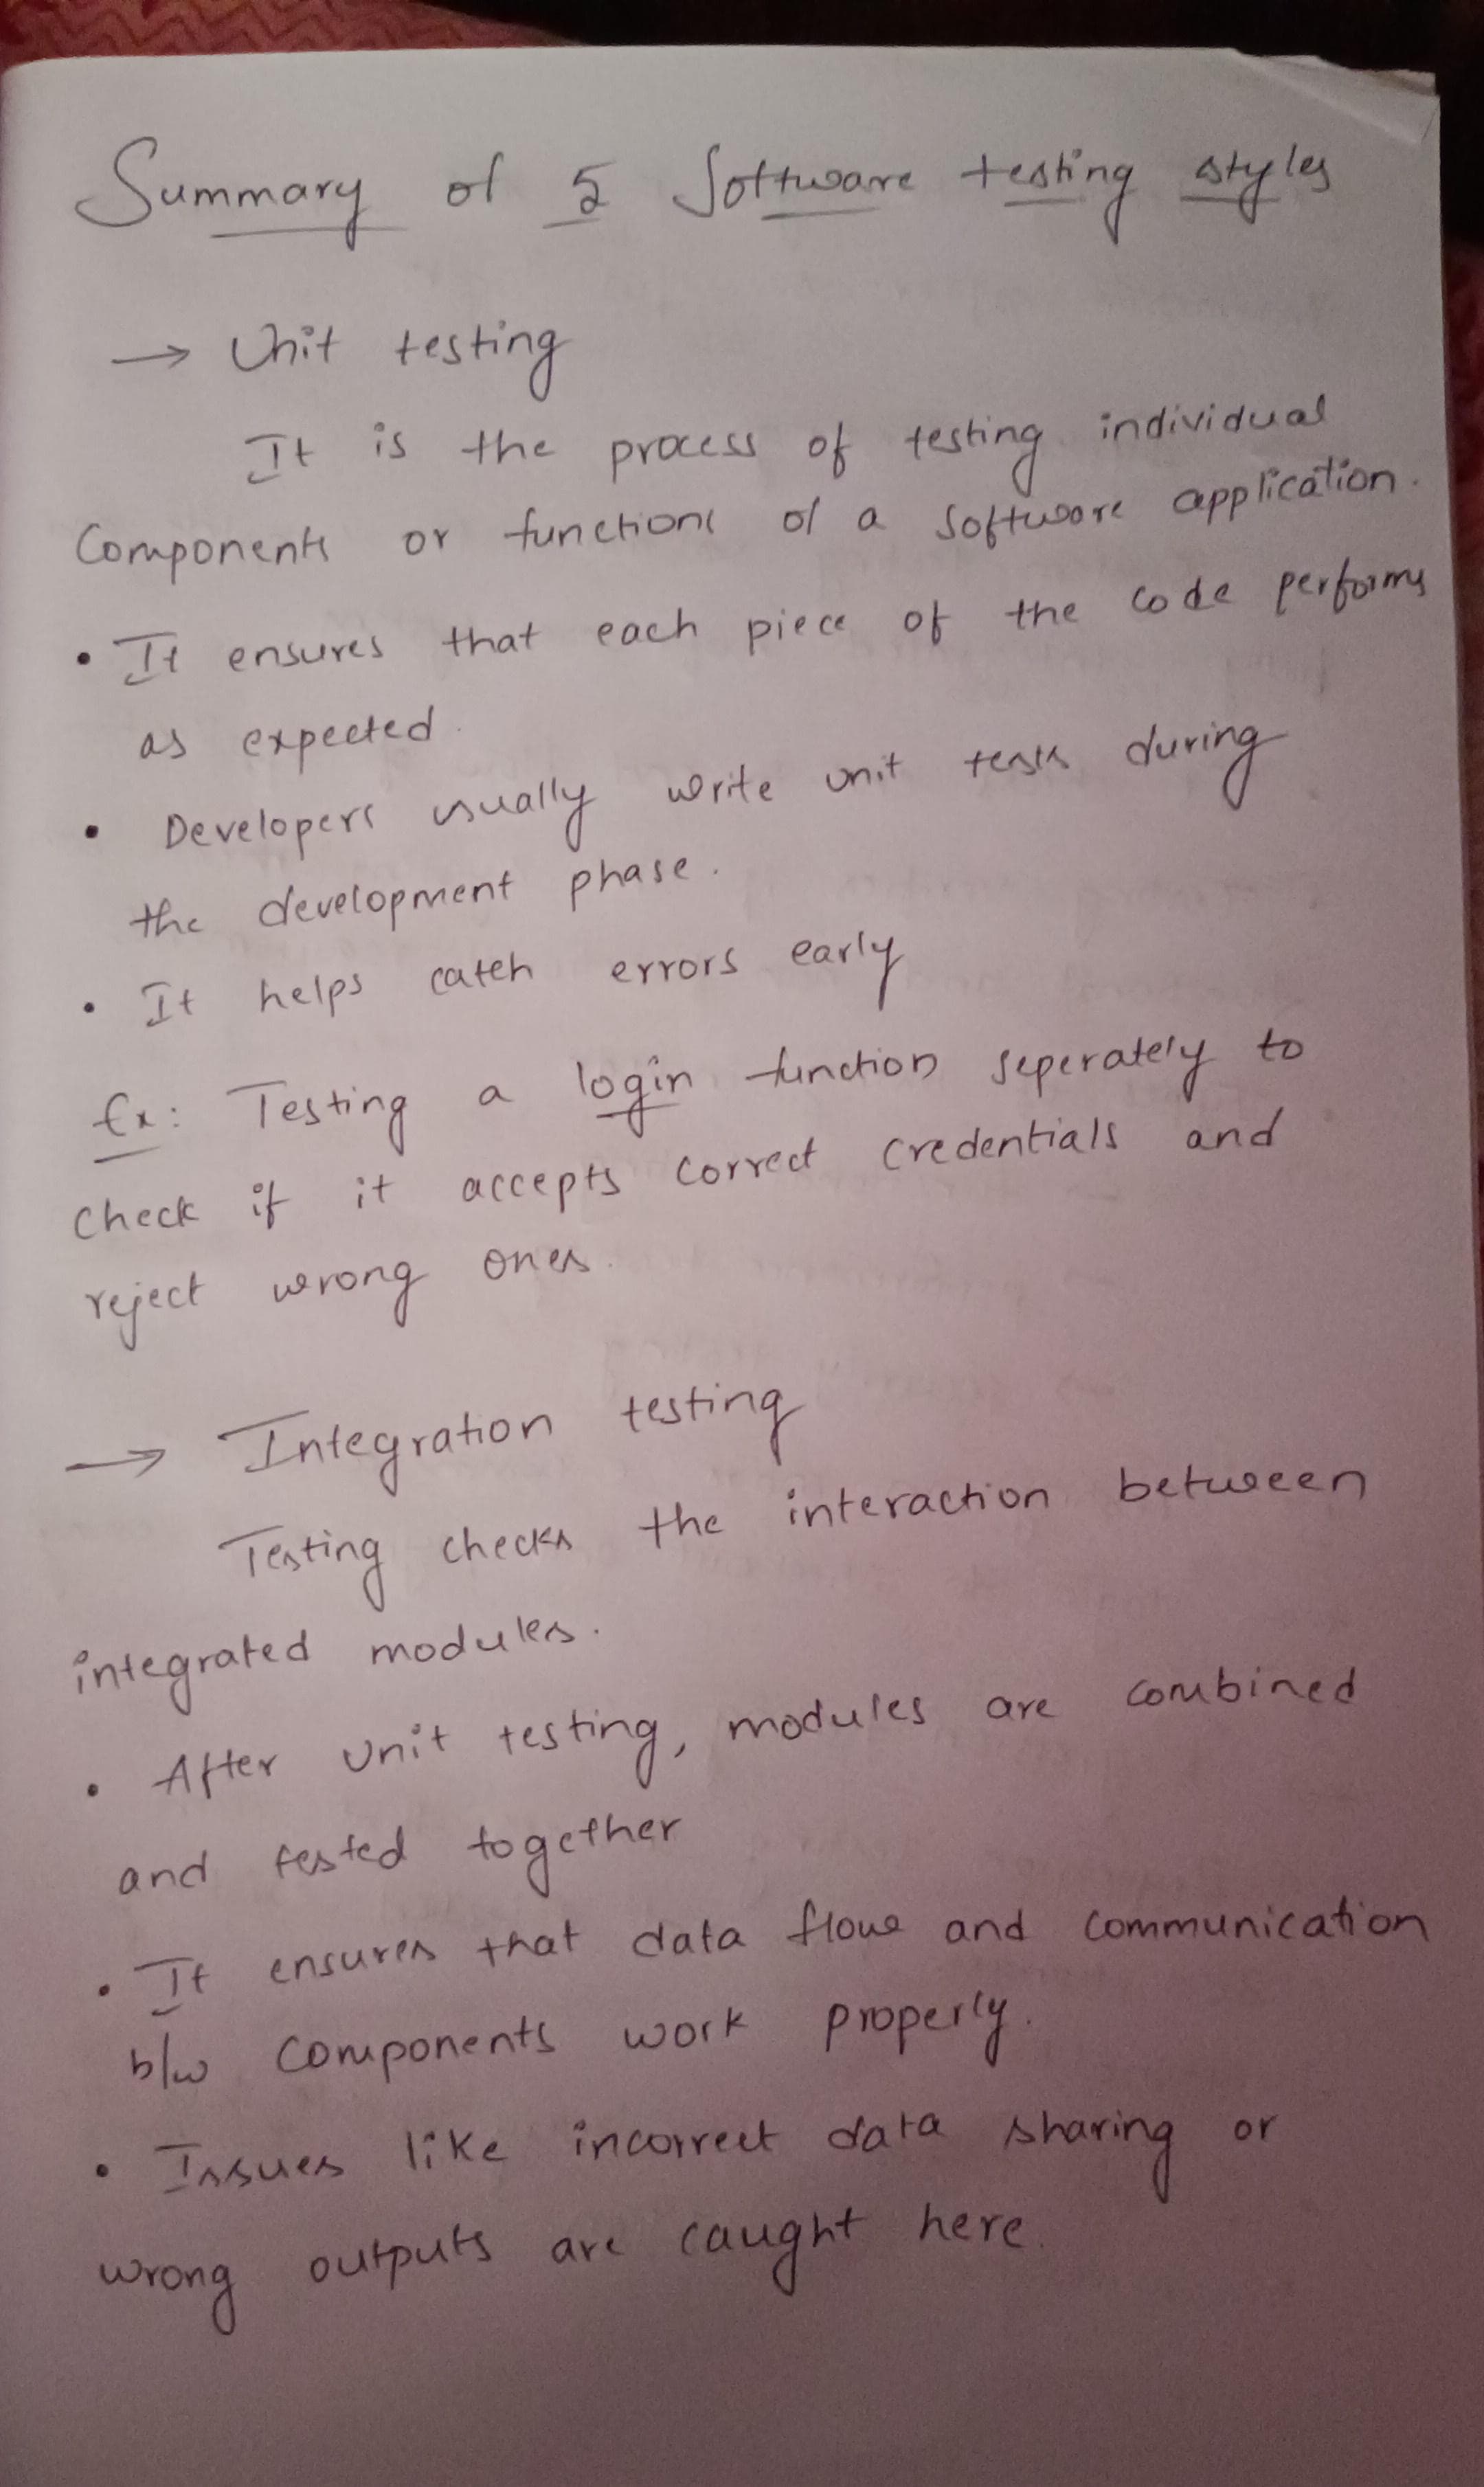 Summary of 5 Software testing styles
→ Unit testing
It is the process of testing individual
Components or functions of a software application.
• It ensures that each piece of the code performs
as expected.
• Developers usually write unit tests during
the development phase.
• It helps catch errors early
Ex: Testing a login function seperately to
check if it accepts correct credentials and
reject wrong ones.
→ Integration testing
Testing checks the interaction between
integrated modules.
• After unit testing, modules are combined
and tested together
• It ensures that data flow and communication
b/w components work properly.
• Issues like incorrect data sharing or
wrong outputs are caught here.